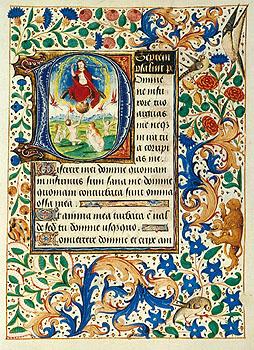 Septem
Domine
ne in fu
rore tuo
arguas
me neqз
in ira tu
a corripi
as me.
Miserere mei domine quoniam
infirmus sum sana me domine
quoniam conturbata sunt omnia
ossa mea.
Et anima mea turbata est val
de sed tu domine usquequo
Convertere domine et eripe